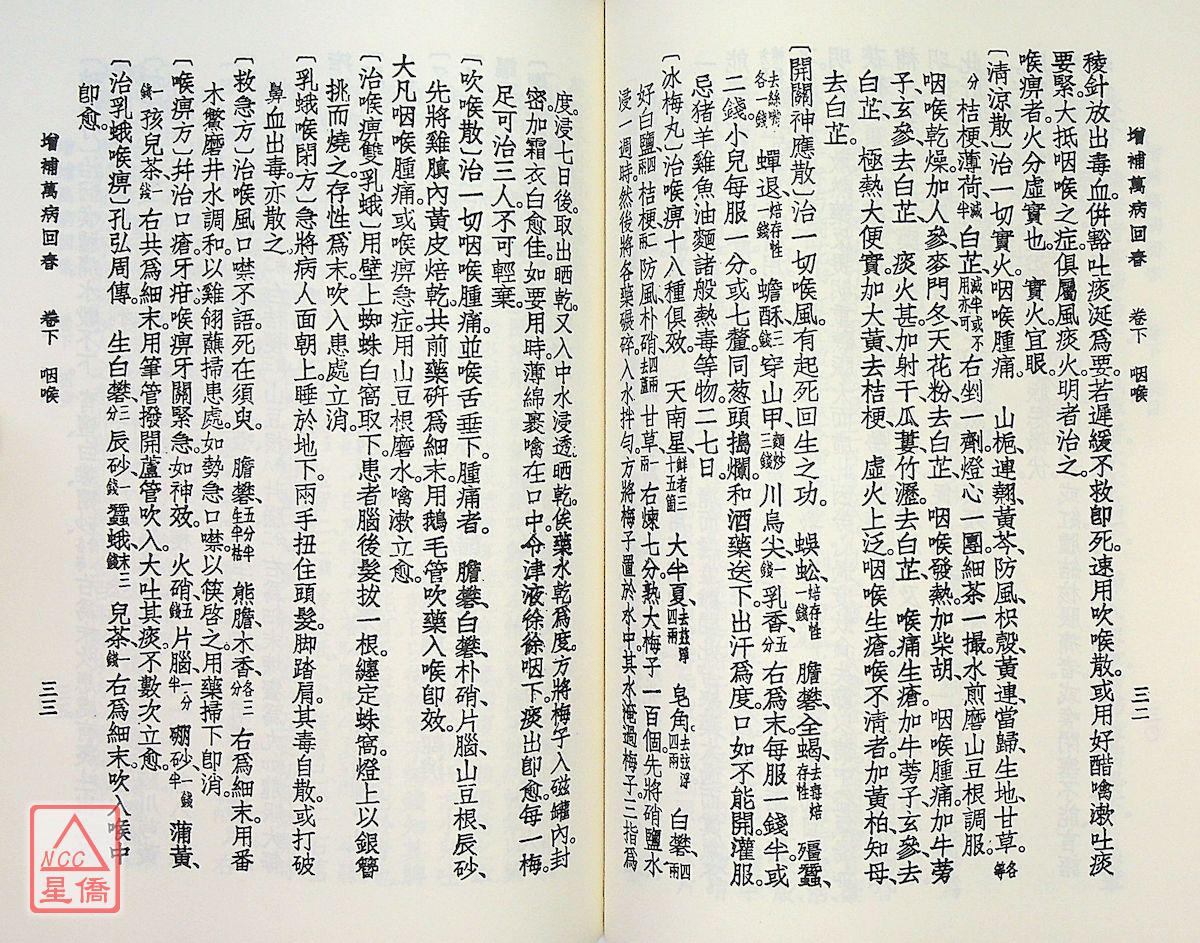 增補萬病回春　卷下　咽喉　三二
稜針放出毒血併豁吐痰涎爲要若遲緩不救卽死速用吹喉散或用好醋噙漱吐痰
要緊大抵咽喉之症俱屬風痰火明者治之。
喉痹者火分虛實也。　實火宜眼
〔清涼散〕治一切實火咽喉腫痛　山梔連翹、黃芩防風枳殼黃連當歸生地甘草。各等
分桔梗薄荷、減半白芷減半或不用亦可右剉一劑燈心一團細茶一撮水煎磨山豆根調服
咽喉乾燥加人參麥門冬天花粉去白芷　咽喉發熱加柴胡　咽喉腫痛加牛蒡
子玄參去白芷　痰火甚加射干瓜蔞竹瀝去白芷　喉痛生瘡加牛蒡子玄參去
白芷　極熱大便實加大黃去桔梗　虛火上泛咽喉生瘡喉不清者加黃柏知母、
去白芷。
〔開關神應散〕治一切喉風有起死回生之功。　蜈蚣、焙存性一錢　膽礬、全蝎、去毒焙存性　殭蠶、
去絲嘴各一錢　蟬退焙存性一錢　蟾酥三錢穿山甲、麵炒三錢　川烏尖、一錢乳香、五分右爲末每服一錢半或
二錢小兒每服一分或七釐同葱頭搗爛和酒藥送下出汗爲度口如不能開灌服。
忌猪羊雞魚油麵諸般熱毒等物二七日
〔冰梅丸〕治喉痹十八種俱效　天南星鮮者三十五箇　大半夏、四兩　皂角、去弦淨四兩　白礬、四兩
好白鹽、四兩桔梗、二兩防風、朴硝四兩甘草一兩右煉七分熟大梅子一百個先將硝鹽水
浸一週時然後將各藥碾碎入水拌勻方將梅子置於水中其水淹過梅子三指爲
度。浸七日後取出晒乾又入中水浸透晒乾俟藥水乾爲度方將梅子入磁罐內封
密加霜衣白愈佳如要用時薄綿裹噙在口中令津液徐徐咽下。痰出卽愈每一梅
足可治三人不可輕棄
〔吹喉散〕治一切咽喉腫痛並喉舌垂下。腫痛者。　膽礬、白礬、朴硝片腦山豆根辰砂、
先將雞膹內黃皮焙乾共前藥硏爲細末用鵝毛管吹藥入喉卽效。
大凡咽喉腫痛或喉痹急症用山豆根磨水噙漱立愈。
〔治喉痹雙乳蛾〕用壁上蜘蛛白窩取下患者腦後髮拔一根纏定蛛窩燈上以銀簪
挑而燒之存性爲末吹入患處立消
〔乳蛾喉閉方〕急將病人面朝上睡於地下兩手扭住頭髮脚踏肩其毒自散或打破
鼻血出毒亦散之
〔救急方〕治喉風口噤不語死在須臾。　膽礬、五分半生半枯　熊膽、木香、各三分　右爲細末用番
木鱉磨井水調和以雞翎蘸掃患處如勢急口噤以筷啓之用藥掃下卽消。
〔喉痹方〕幷治口瘡牙疳喉痹牙關緊急如神效。　火硝五錢片腦、一分半　硼砂一錢半　蒲黃、
一錢孩兒茶一錢右共爲細末用筆管撥開蘆管吹入大吐其痰不數次立愈。
〔治乳蛾喉痹〕孔弘周傳。　生白礬、三分辰砂一錢蠶蛾、末三錢　兒茶、一錢右爲細末吹入喉中
卽愈。
增補萬病回春　卷下　咽喉　三三
NCC
星僑